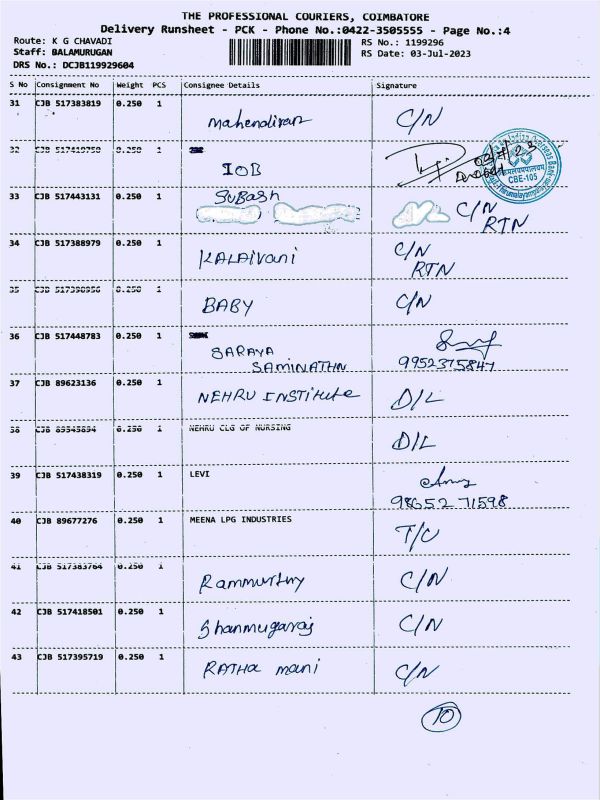 THE PROFESSIONAL COURIERS, COIMBATORE
Delivery Runsheet - PCK - Phone No.:0422-3505555 - Page No.:4
Route: K G CHAVADI
RS No.: 1199296
Staff: BALAMURUGAN
RS Date: 03-Jul-2023
DRS No.: DCJB119929604
S No Consignment No Weight PCS Consignee Details Signature
31 CJB 517383819 0.250 1
Mahendiran C/N
32 CJB 517419750 0.250 1
IOB
CBE-105
33 CJB 517443131 0.250 1 SUBASH
C/N
RTN
34 CJB 517388979 0.250 1 C/N
KALAIVANI RTN
35 CJB 517398956 0.250 1
BABY C/N
36 CJB 517448783 0.250 1
SARAYA
SAMINATHN 9952375847
37 CJB 89623136 0.250 1
NEHRU INSTITUTE D/L
38 CJB 89545894 0.250 1 NEHRU CLG OF NURSING
D/L
39 CJB 517438319 0.250 1 LEVI
98652 71598
40 CJB 89677276 0.250 1 MEENA LPG INDUSTRIES
T/C
41 CJB 517383764 0.250 1
Rammurthy C/N
42 CJB 517418501 0.250 1
Shanmugaraj C/N
43 CJB 517395719 0.250 1
RATHA mani C/N
10